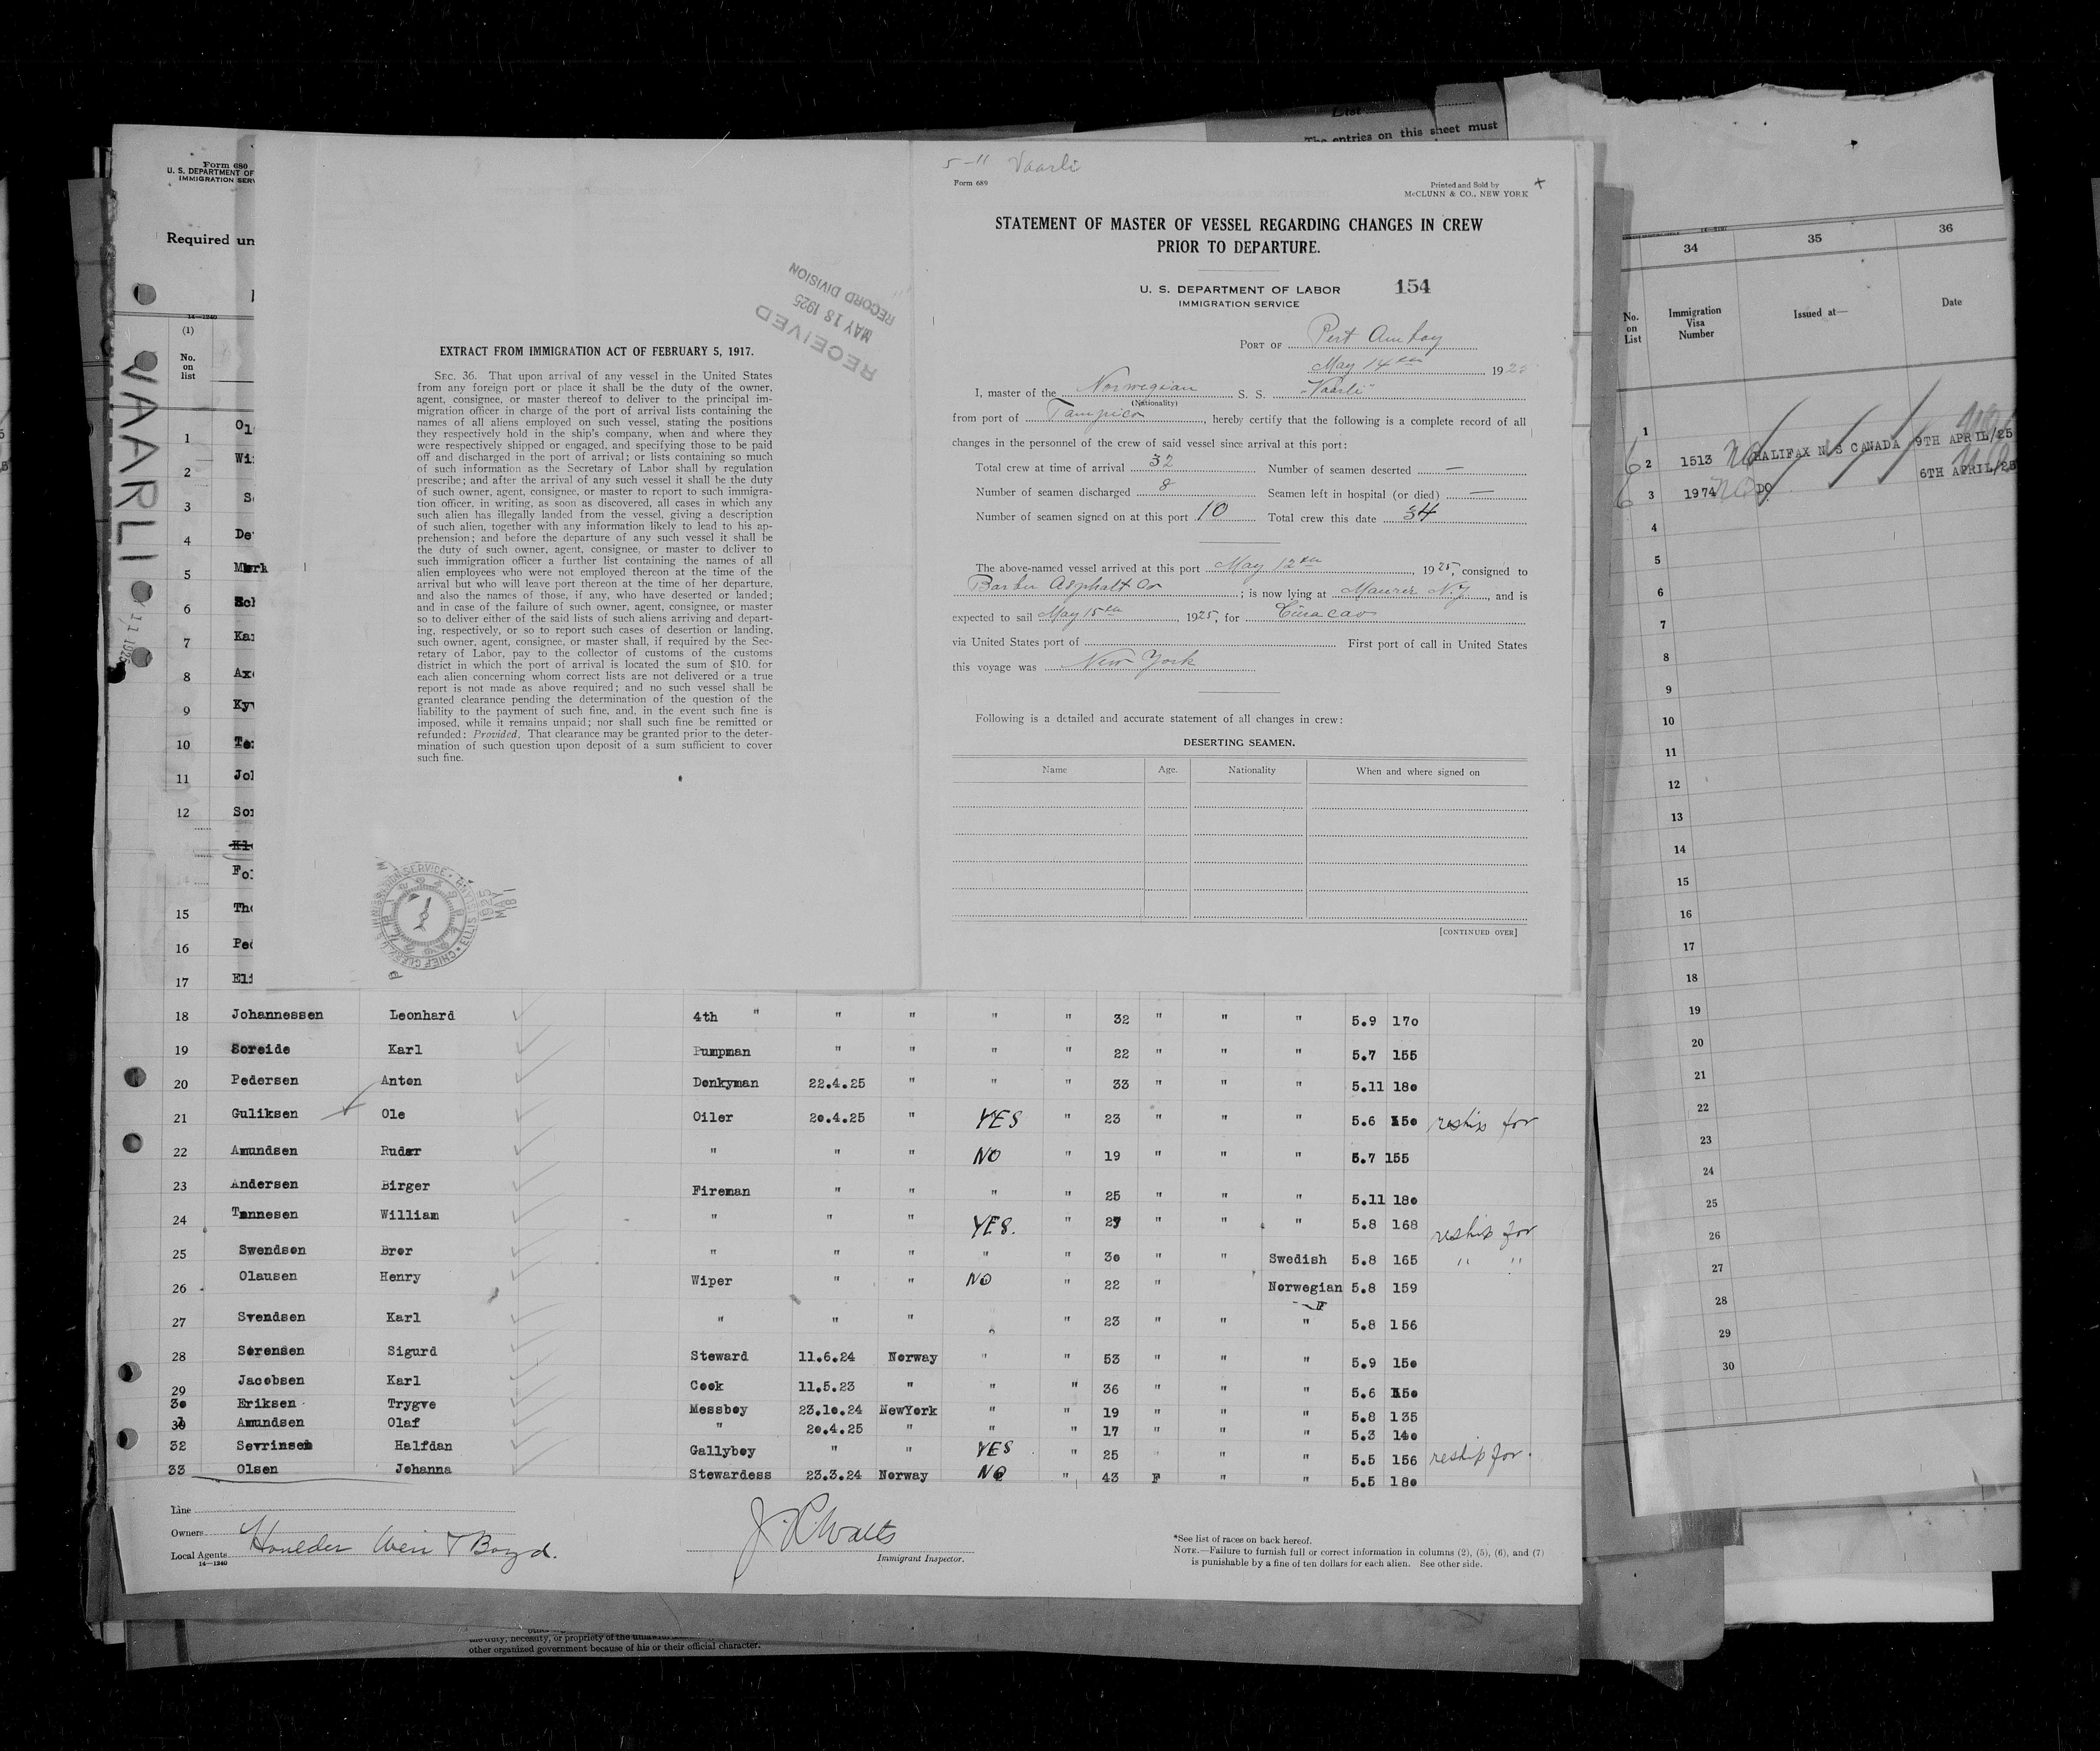 5-11 Vaarli
Form 689
Printed and Sold by
McCLUNN & CO., NEW YORK
STATEMENT OF MASTER OF VESSEL REGARDING CHANGES IN CREW
PRIOR TO DEPARTURE.
U. S. DEPARTMENT OF LABOR 154
IMMIGRATION SERVICE
PORT OF Port Amboy
May 14th 1925
I, master of the Norwegian S. S. "Vaarli"
(Nationality)
from port of Tampico, hereby certify that the following is a complete record of all
changes in the personnel of the crew of said vessel since arrival at this port:
Total crew at time of arrival 32 Number of seamen deserted —
Number of seamen discharged 8 Seamen left in hospital (or died) —
Number of seamen signed on at this port 10 Total crew this date 34
The above-named vessel arrived at this port May 12th, 1925, consigned to
Barber Asphalt Co; is now lying at Maurer N.J., and is
expected to sail May 15th, 1925, for Curacao
via United States port of First port of call in United States
this voyage was New York
Following is a detailed and accurate statement of all changes in crew:
DESERTING SEAMEN.
Name Age. Nationality When and where signed on
[CONTINUED OVER]
RECEIVED
MAY 18 1925
RECORD DIVISION
EXTRACT FROM IMMIGRATION ACT OF FEBRUARY 5, 1917.
SEC. 36. That upon arrival of any vessel in the United States
from any foreign port or place it shall be the duty of the owner,
agent, consignee, or master thereof to deliver to the principal im-
migration officer in charge of the port of arrival lists containing the
names of all aliens employed on such vessel, stating the positions
they respectively hold in the ship's company, when and where they
were respectively shipped or engaged, and specifying those to be paid
off and discharged in the port of arrival; or lists containing so much
of such information as the Secretary of Labor shall by regulation
prescribe; and after the arrival of any such vessel it shall be the duty
of such owner, agent, consignee, or master to report to such immigra-
tion officer, in writing, as soon as discovered, all cases in which any
such alien has illegally landed from the vessel, giving a description
of such alien, together with any information likely to lead to his ap-
prehension; and before the departure of any such vessel it shall be
the duty of such owner, agent, consignee, or master to deliver to
such immigration officer a further list containing the names of all
alien employees who were not employed thereon at the time of the
arrival but who will leave port thereon at the time of her departure,
and also the names of those, if any, who have deserted or landed;
and in case of the failure of such owner, agent, consignee, or master
so to deliver either of the said lists of such aliens arriving and depart-
ing, respectively, or so to report such cases of desertion or landing,
such owner, agent, consignee, or master shall, if required by the Sec-
retary of Labor, pay to the collector of customs of the customs
district in which the port of arrival is located the sum of $10. for
each alien concerning whom correct lists are not delivered or a true
report is not made as above required; and no such vessel shall be
granted clearance pending the determination of the question of the
liability to the payment of such fine, and, in the event such fine is
imposed, while it remains unpaid; nor shall such fine be remitted or
refunded: Provided. That clearance may be granted prior to the deter-
mination of such question upon deposit of a sum sufficient to cover
such fine.
Form 680
U. S. DEPARTMENT OF
IMMIGRATION SERV
Required un
VAARLI
14—1240
(1)
No.
on
list
1 Ol
2 Wi
3 S
4 De
5 Mark
6 Sch
7 Ka
8 Ax
9 Ky
10 Te
11 Jo
12 So
Kl
Fo
15 Th
16 Pe
17 El
18 Johannessen Leonhard 4th " " " " " 32 " " " 5.9 170
19 Soreide Karl Pumpman " " " " 22 " " " 5.7 155
20 Pedersen Anton Donkyman 22.4.25 " " " 33 " " " 5.11 180
21 Guliksen Ole Oiler 20.4.25 " YES " 23 " " " 5.6 150 reship for
22 Amundsen Rudar " " " NO " 19 " " " 5.7 155
23 Andersen Birger Fireman " " " " 25 " " " 5.11 180
24 Tønnesen William " " " YES. " 27 " " " 5.8 168 reship for
25 Swendsen Bror " " " " " 30 " " Swedish 5.8 165 " "
26 Olausen Henry Wiper " " NO " 22 " Norwegian 5.8 159
27 Svendsen Karl " " " " 23 " " " 5.8 156
28 Sørensen Sigurd Steward 11.6.24 Norway " " 53 " " " 5.9 150
29 Jacobsen Karl Cook 11.5.23 " " " 36 " " " 5.6 150
30 Eriksen Trygve Messboy 23.10.24 NewYork " " 19 " " " 5.8 135
31 Amundsen Olaf " 20.4.25 " " " 17 " " " 5.3 140
32 Sevrinsen Halfdan Gallyboy " " YES " 25 " " " 5.5 156 reship for.
33 Olsen Johanna Stewardess 23.3.24 Norway NO " 43 F " " 5.5 180
Line
Owners
Local Agents Houlder Weir & Boyd.
14—1240
J. P. Watts
Immigrant Inspector.
*See list of races on back hereof.
NOTE.—Failure to furnish full or correct information in columns (2), (5), (6), and (7)
is punishable by a fine of ten dollars for each alien. See other side.
other organized government because of his or their official character.
List
The entries on this sheet must
34 35 36
No.
on
List
Immigration
Visa
Number
Issued at—
Date
1
2 1513 HALIFAX N S CANADA 9TH APRIL/25
3 1974 DO 6TH APRIL/25
4
5
6
7
8
9
10
11
12
13
14
15
16
17
18
19
20
21
22
23
24
25
26
27
28
29
30